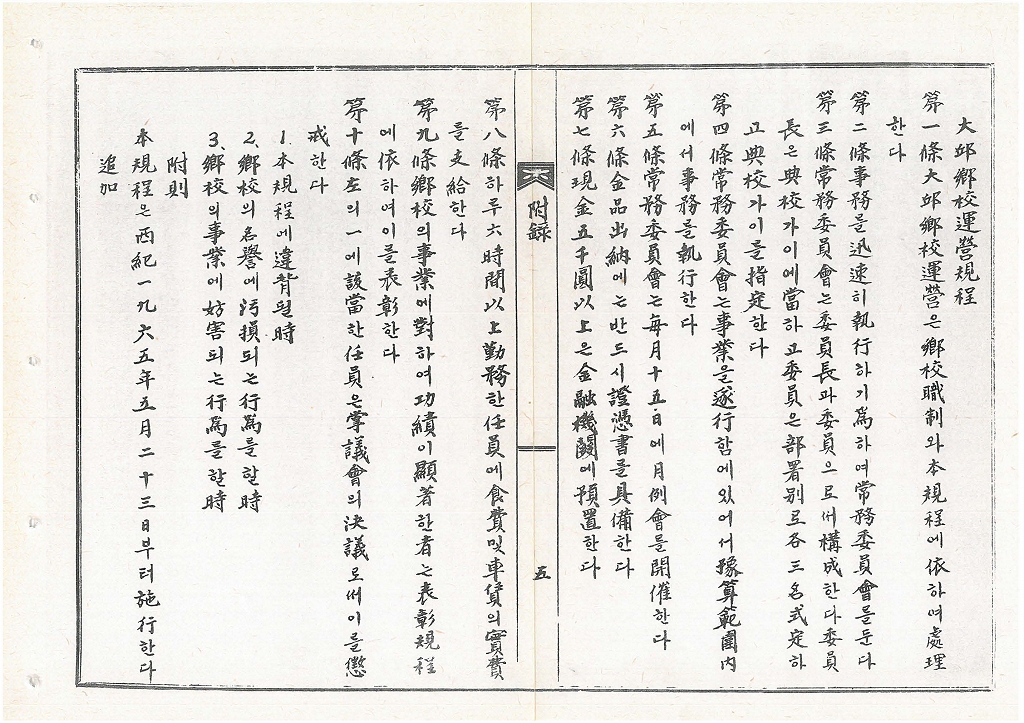 大邱鄕校運營規程
第一條大邱鄕校運營은鄕校職制와本規程에依하여處理
한다
第二條事務를迅速히執行하기爲하여常務委員會를둔다
第三條常務委員會는委員長과委員으로써構成한다委員
長은典校가이에當하고委員은部署別로各三名式定하
고典校가이를指定한다
第四條常務委員會는事業을遂行함에있어서豫算範圍內
에서事務를執行한다
第五條常務委員會는每月十五日에月例會를開催한다
第六條金品出納에는반드시證憑書를具備한다
第七條現金五千圓以上은金融機關에預置한다
附錄
五
第八條하루六時間以上勤務한任員에食費및車賃의實費
를支給한다
第九條鄕校의事業에對하여功績이顯著한者는表彰規程
에依하여이를表彰한다
第十條左의一에該當한任員은掌議會의決議로써이를懲
戒한다
1.本規程에違背될時
2.鄕校의名譽에汚損되는行爲를할時
3.鄕校의事業에妨害되는行爲를할時
附則
本規程은西紀一九六五年五月二十三日부터施行한다
追加